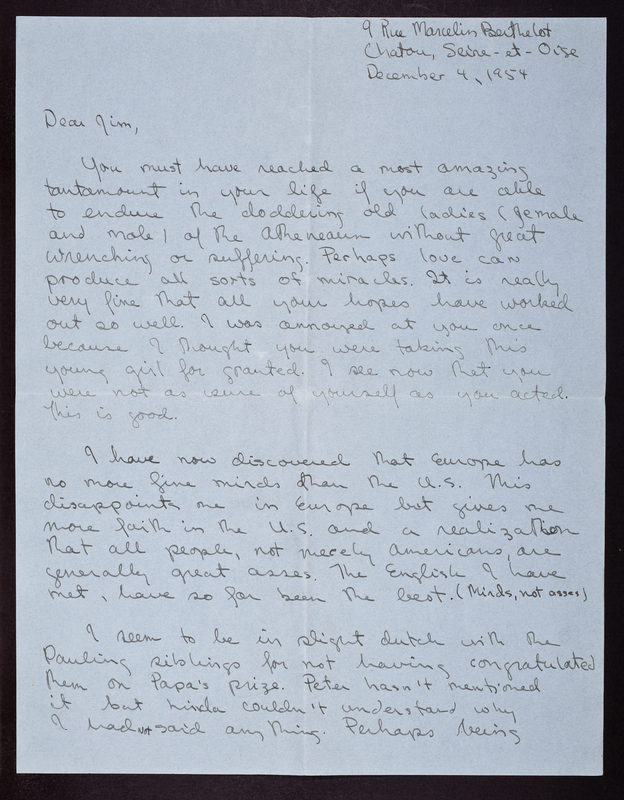 9 Rue Marcelin Berthelot
Chatou, Seine-et-Oise
December 4, 1954
Dear Jim,
You must have reached a most amazing
tantamount in your life if you are able
to endure the doddering old ladies (female
and male) of the Atheneaum without great
wrenching or suffering. Perhaps love can
produce all sorts of miracles. It is really
very fine that all your hopes have worked
out so well. I was annoyed at you once
because I thought you were taking this
young girl for granted. I see now that you
were not as sure of yourself as you acted.
This is good.
I have now discovered that Europe has
no more fine minds than the U.S. This
disappoints me in Europe but gives me
more faith in the U.S. and a realization
that all people, not merely Americans, are
generally great asses. The English I have
met, have so far been the best. (Minds, not asses)
I seem to be in slight dutch with the
Pauling siblings for not having congratulated
them on Papa's prize. Peter hasn't mentioned
it but Linda couldn't understand why
I had not said anything. Perhaps being